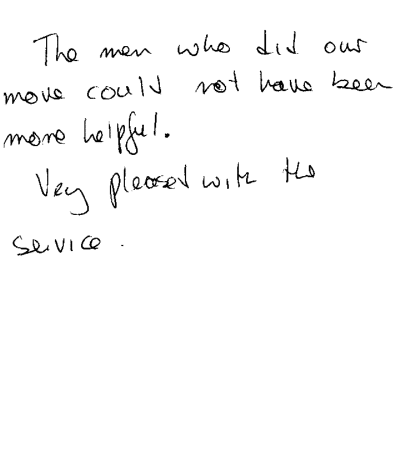 The men who did our
move could not have been
more helpful.
Very pleased with the
service.